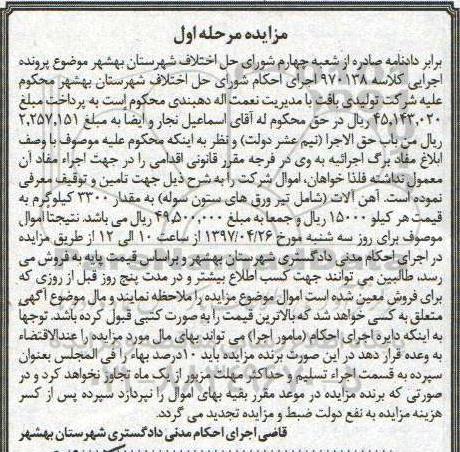 مزایده مرحله اول
برابر دادنامه صادره از شعبه چهارم شورای حل اختلاف شهرستان بهشهر موضوع پرونده
اجرایی کلاسه ۹۷۰۱۳۸ اجرای احکام شورای حل اختلاف شهرستان بهشهر محکوم
علیه شرکت تولیدی بافت با مدیریت نعمت اله دهبندی محکوم است به پرداخت مبلغ
۴۵،۱۴۳،۰۲۰ ریال در حق محکوم له آقای اسماعیل نجار و ایضا به مبلغ ۲،۲۵۷،۱۵۱
ریال من باب حق الاجرا (نیم عشر دولت) و نظر به اینکه محکوم علیه موصوف با وصف
ابلاغ مفاد برگ اجرائیه به وی در فرجه مقرر قانونی اقدامی را در جهت اجراء مفاد آن
معمول نداشته فلذا خواهان، اموال شرکت را به شرح ذیل جهت تامین و توقیف معرفی
نموده است. آهن آلات (شامل تیر ورق های ستون سوله) به مقدار ۳۳۰۰ کیلوگرم به
قیمت هر کیلو ۱۵۰۰۰ ریال و جمعا به مبلغ ۴۹،۵۰۰،۰۰۰ ریال می باشد. نتیجتا اموال
موصوف برای روز سه شنبه مورخ ۱۳۹۷/۰۴/۲۶ از ساعت ۱۰ الی ۱۲ از طریق مزایده
در اجرای احکام مدنی دادگستری شهرستان بهشهر و براساس قیمت پایه به فروش می
رسد، طالبین می توانند جهت کسب اطلاع بیشتر و در مدت پنج روز قبل از روزی که
برای فروش معین شده است اموال موضوع مزایده را ملاحظه نمایند و مال موضوع آگهی
متعلق به کسی خواهد شد که بالاترین قیمت را به صورت کتبی قبول کرده باشد. توجها
به اینکه دایره اجرای احکام (مامور اجرا) می تواند بهای مال مورد مزایده را عندالاقتضاء
به وعده قرار دهد در این صورت برنده مزایده باید ۱۰درصد بهاء را فی المجلس بعنوان
سپرده به قسمت اجراء تسلیم و حداکثر مهلت مزبور از یک ماه تجاوز نخواهد کرد و در
صورتی که برنده مزایده در موعد مقرر بقیه بهای اموال را نپردازد سپرده پس از کسر
هزینه مزایده به نفع دولت ضبط و مزایده تجدید می گردد.
قاضی اجرای احکام مدنی دادگستری شهرستان بهشهر